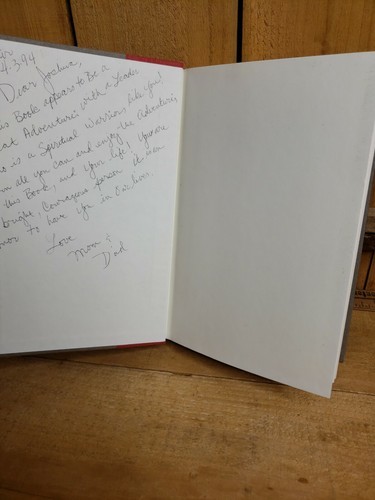 4.3.94
Dear Joshua,
Book appears to be a
Adventure with a Leader
is a Spiritual Warrior like you!
all you can and enjoy his Adventure,
this Book, and your life! You are
bright, Courageous person. It's an
to have you in our lives.
Love
Mom &
Dad